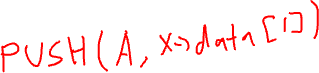 PUSH(A, x->data[i])